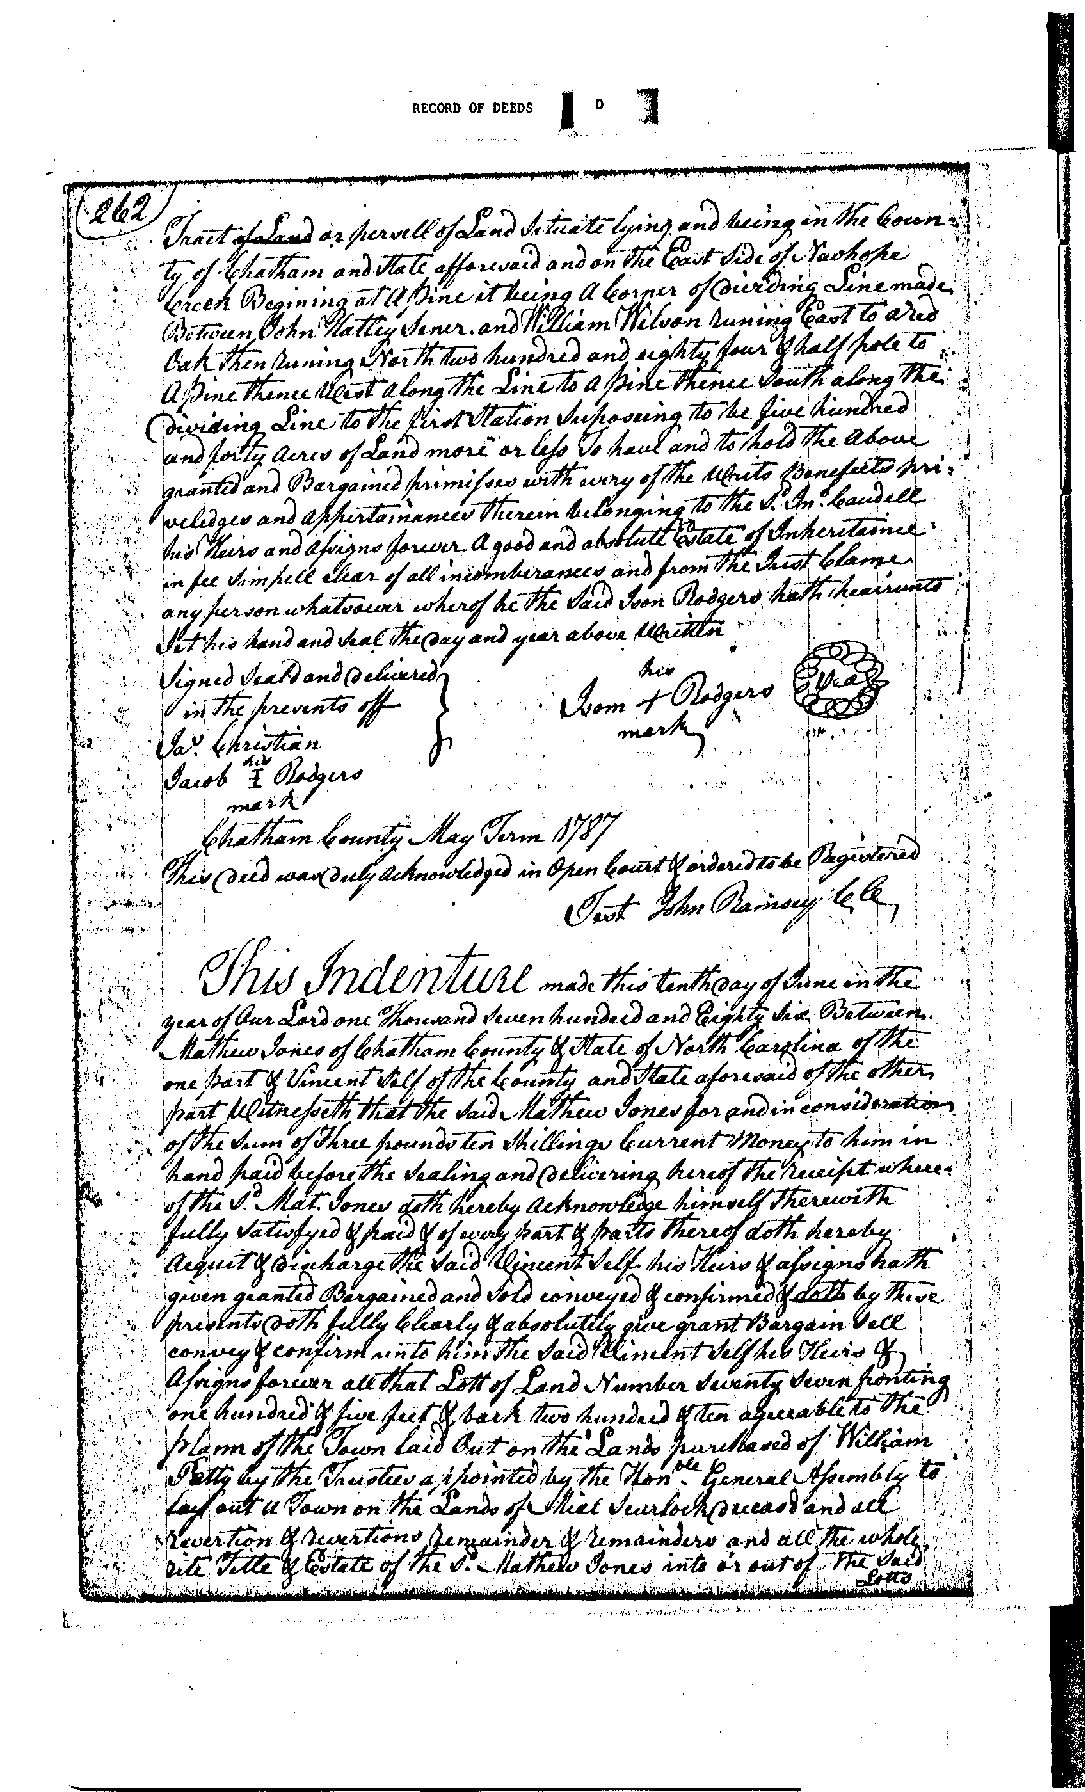 RECORD OF DEEDS D
262
Tract of a Land or persell of Land Situate lying and being in the Coun=
ty of Chatham and State afforesaid and on the East Side of Naohope
Creek Begining at A pine it being A Corner of Dierding Line made
Between John Hatley Sener. and William Wilson runing East to a red
Oak then runing North two hundred and eighty four & half pole to
A pine thence West along the Line to A pine thence South along the
dividing Line to the first Station Suposeing to be five hundred
and forty Acres of Land more or less To have and to hold the Above
granted and Bargained primisses with every of the Writs Benefeets pri=
veledges and appertainances therein belonging to the Sd. Jno. Caudell
his Heirs and Assigns forever A good and absolute Estate of Inheritaince
in fee Simpell clear of all incomberances and from the Just Clame
any person whatsoever wherof he the Said Isom Rodgers hath heairunto
Set his hand and Seal the Day and year above Written
Signed Seald and Delivered
in the presents off
his
Isom + Rodgers Seal
mark
Jas. Christian
his
Jacob I Rodgers
mark
Chatham County May Term 1787
This Deed was Duly Acknowledged in Open Court & ordered to be Registered
Test John Ramsey CC
This Indenture made this tenth Day of June in the
year of Our Lord one Thousand Seven hundred and Eighty Six Between
Mathew Jones of Chatham County & State of North Carolina of the
one part & Vincent Self of the County and State aforesaid of the other
part Witnesseth that the Said Mathew Jones for and in consideration
of the Sum of Three pounds ten Shillings Current Money to him in
hand paid before the Sealing and Delivering hereof the receipt where=
of the Sd. Mat. Jones doth hereby Acknowledge himself therewith
fully Satisfyed & paid & of every part & parts thereof doth hereby
Acquit & Discharge the Said Vincent Self his Heirs & assigns hath
given granted Bargained and Sold conveyed & confirmed & doth by these
presents Doth fully Clearly & absolutely give grant Bargain Sell
convey & confirm unto him the Said Vincent Self his Heirs &
Assigns forever all that Lott of Land Number Seventy Seven fronting
one hundred & five feet & back two hundred & ten agreeable to the
plann of the Town laid Out on the Lands purchased of William
Petty by the Trustees appointed by the Honble General Assembly to
lay out A Town on the Lands of Mial Scurlock Deceasd and all
revertion & revertions remainder & remainders and all the whole
rite Title & Estate of the Sd. Mathew Jones into or out of the Said
Lotts